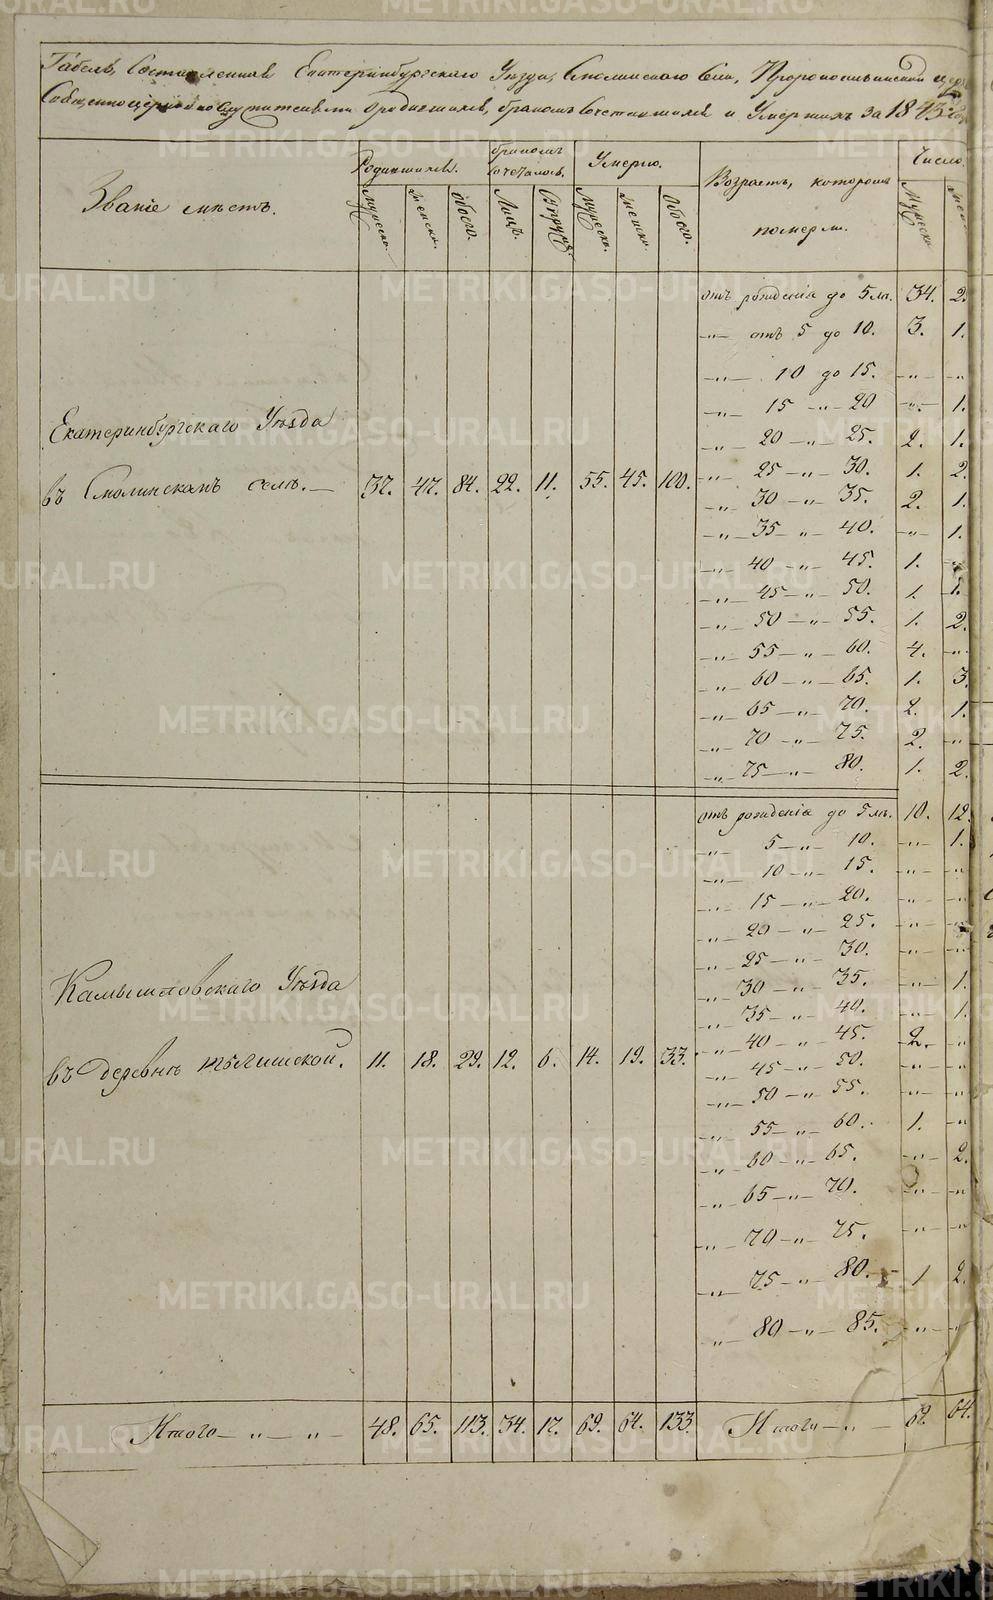 Табель, Составленная Екатеринбургскаго Уезда, Смолинскаго села,
священноцерковнослужителями о родившихся, бракомъ сочетавшихся и Умершихъ за 1843
Званіе мѣстъ.
Родившихся.
бракомъ сочеталось.
Умерло.
Возрастъ, котором померли.
Число.
мужеска. женска. обоего. Лицъ. Супруж. мужеска. женска. обоего. Мужеска
Екатеринбургскаго Уѣзда
въ Смолинскомъ селѣ.— 37. 47. 84. 22. 11. 55. 45. 100.
отъ рожденія до 5 лѣ. 34. 2.
—„— отъ 5 до 10. 3. 1.
—„— 10 до 15. —„— —„
—„— 15 —„— 20 —„— 1.
—„— 20 —„— 25. 2. 1.
—„— 25 —„— 30. 1. 2.
—„— 30 —„— 35. 2. 1.
—„— 35 —„— 40. —„— 1.
—„— 40 —„— 45. 1.
—„— 45 —„— 50. 1. 1.
—„— 50 —„— 55. 1. 2.
—„— 55 —„— 60. 4. —„—
—„— 60 —„— 65. 1. 3.
—„— 65 —„— 70. 2. 1.
—„— 70 —„— 75. 2. —„—
—„— 75 —„— 80. 1. 2.
Камышловскаго Уѣзда
въ деревнѣ 11. 18. 29. 12. 6. 14. 19. 33.
отъ рожденія до 5 лѣ. 10. 12.
—„— 5 —„— 10. —„— 1.
—„— 10 —„— 15. —„— —„
—„— 15 —„— 20. —„— —„
—„— 20 —„— 25. —„— —„
—„— 25 —„— 30. —„— —„
—„— 30 —„— 35. —„— 1.
—„— 35 —„— 40. —„— 1.
—„— 40 —„— 45. 2. —„
—„— 45 —„— 50. —„— —„
—„— 50 —„— 55. —„— —„
—„— 55 —„— 60. 1. —„
—„— 60 —„— 65. —„— 2.
—„— 65 —„— 70. —„— —„
—„— 70 —„— 75. —„— —„
—„— 75 —„— 80. — 1 2.
—„— 80 —„— 85. —„— —„
Итого — „ — „ — 48. 65. 113. 34. 17. 69. 64. 133. Итого — „ — 69. 64.
METRIKI.GASO-URAL.RU